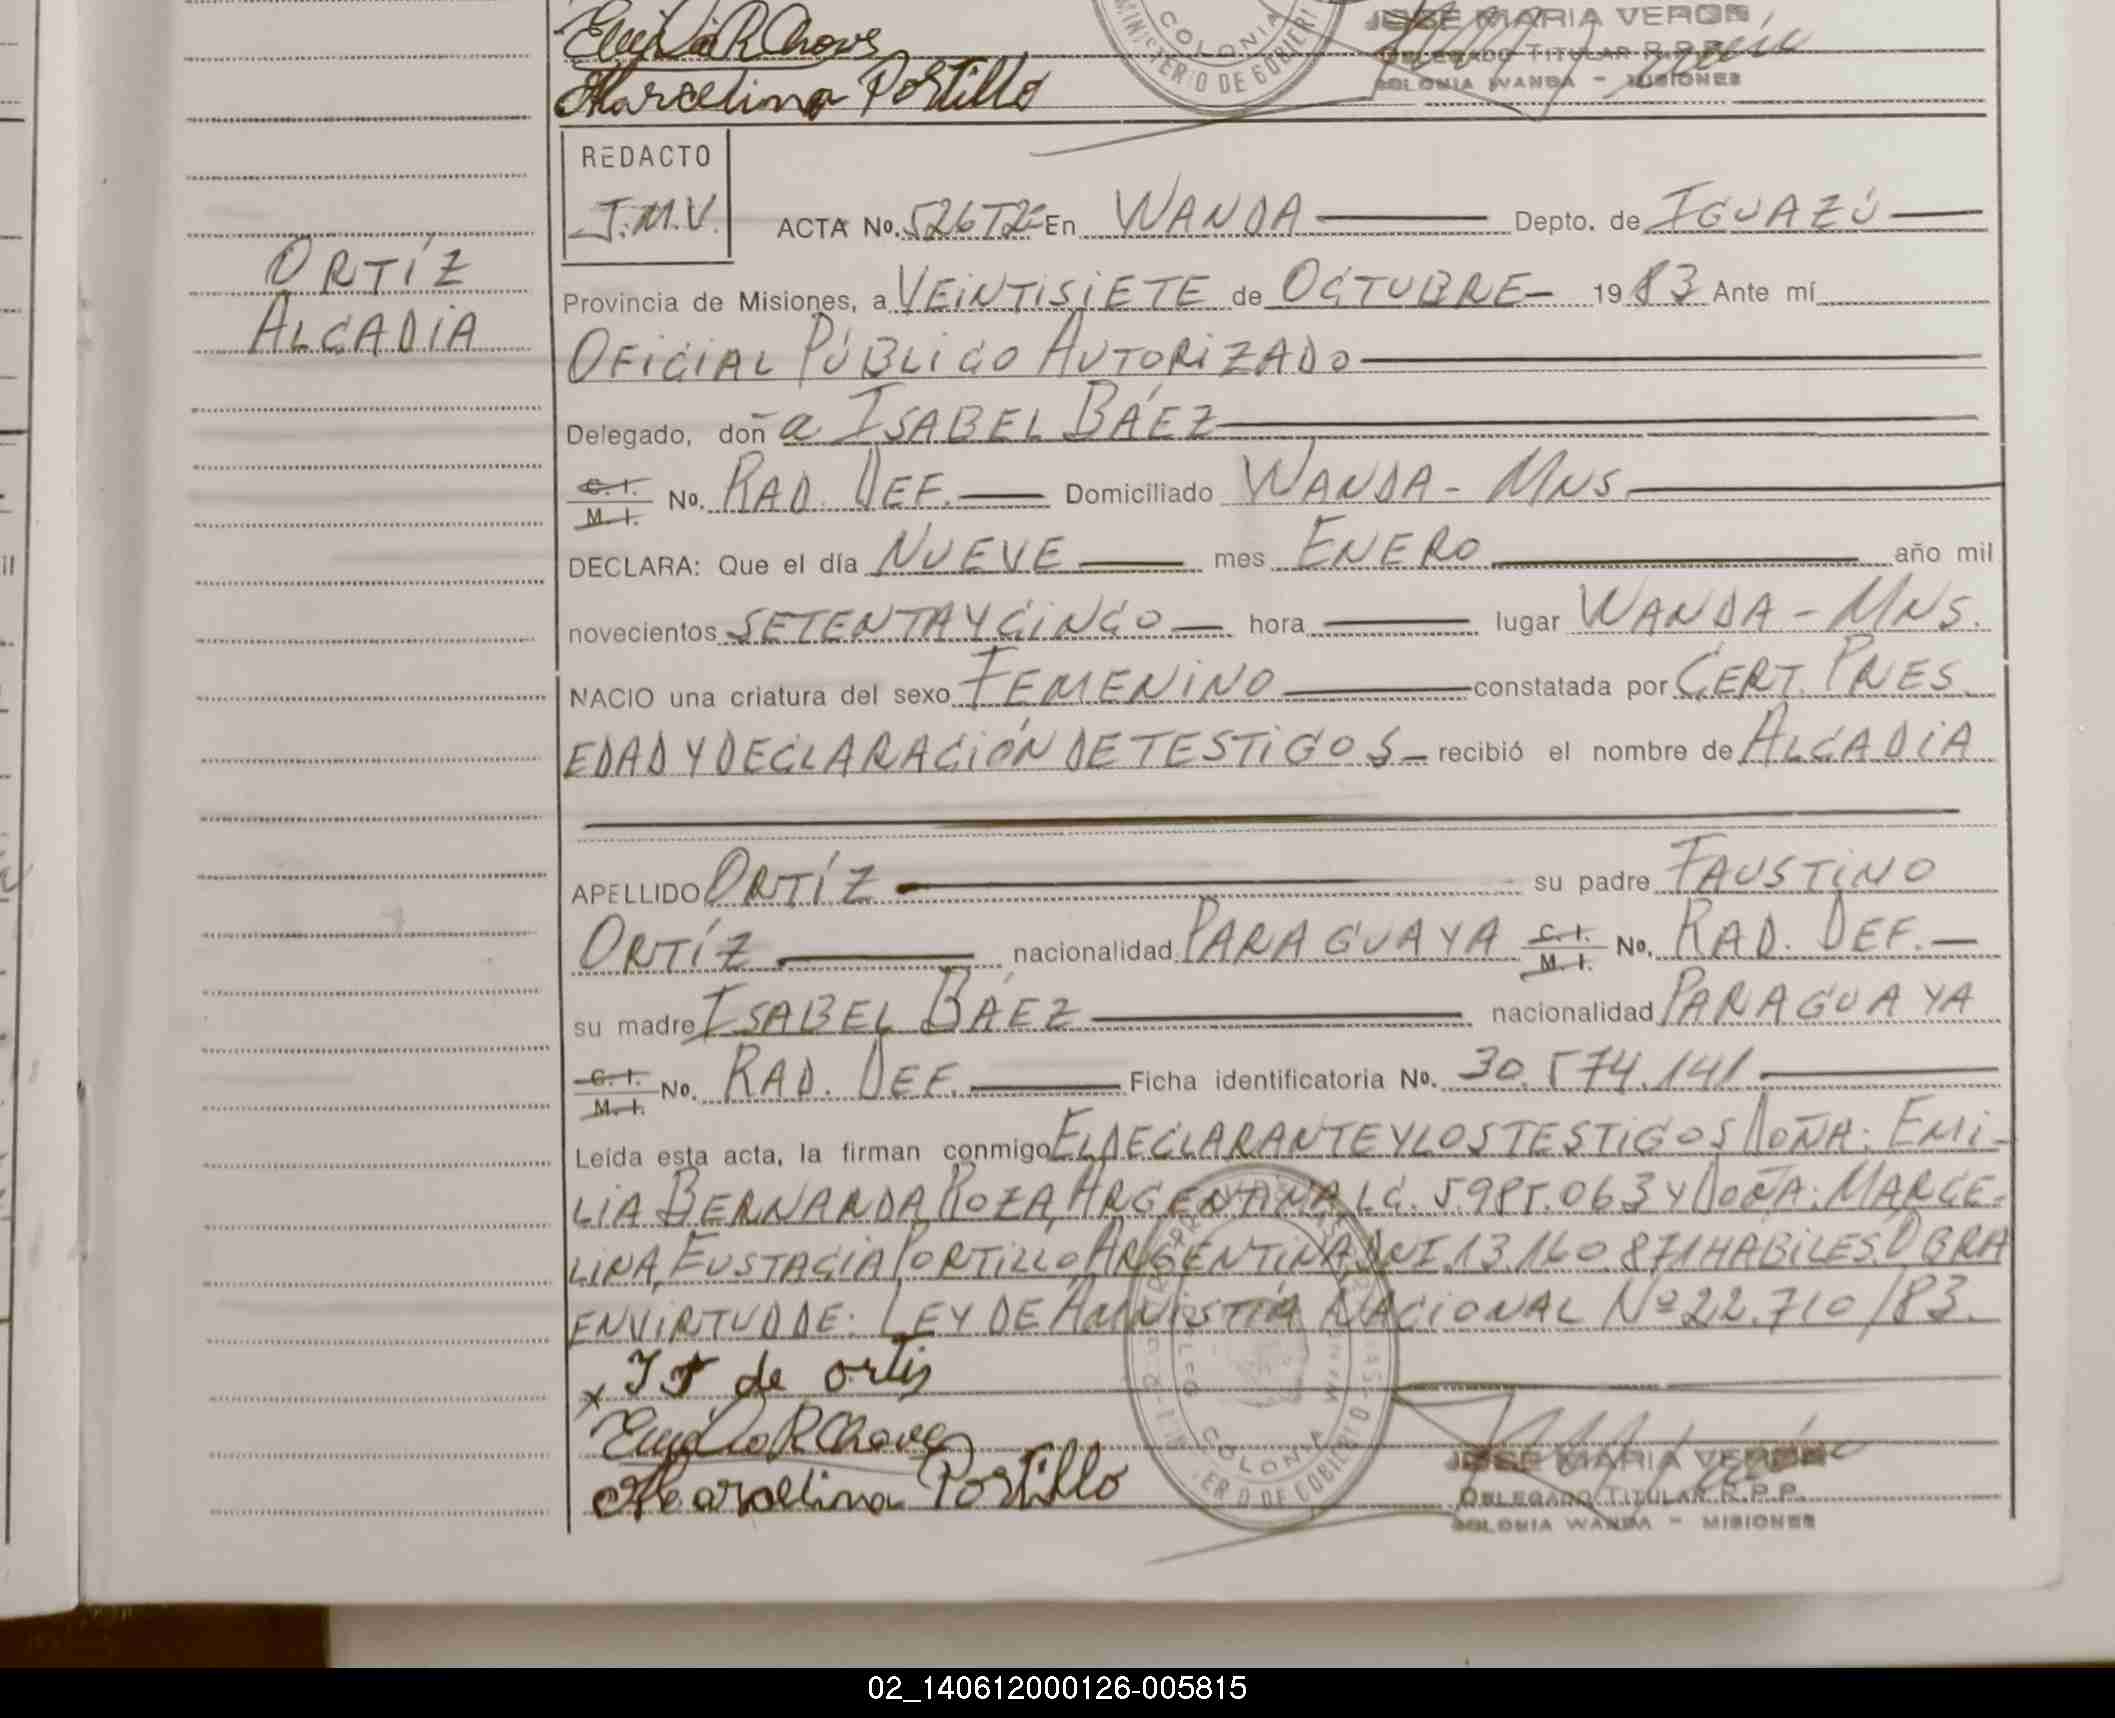 Marcelina Portillo
COLONIA
MINISTERIO DE GOBIERN
JOSE MARIA VERON
DELEGADO TITULAR R.P.P.
COLONIA WANDA - MISIONES
REDACTO
J.M.V.
ORTÍZ
ALCADIA
ACTA No. 526T2 En WANDA Depto. de IGUAZÚ
Provincia de Misiones, a VEINTISIETE de OCTUBRE 1983 Ante mí
OFICIAL PÚBLICO AUTORIZADO
Delegado, doña ISABEL BÁEZ
C. I. M. I. No. RAD. DEF. Domiciliado WANDA - MNS
DECLARA: Que el día NUEVE mes ENERO año mil
novecientos SETENTA Y CINCO hora lugar WANDA - MNS.
NACIO una criatura del sexo FEMENINO constatada por CERT. PRES.
EDAD Y DECLARACIÓN DE TESTIGOS recibió el nombre de ALCADIA
APELLIDO ORTÍZ su padre FAUSTINO
ORTÍZ nacionalidad PARAGUAYA C. I. M. I. No. RAD. DEF.
su madre ISABEL BÁEZ nacionalidad PARAGUAYA
C. I. M. I. No. RAD. DEF. Ficha identificatoria No. 30.574.141
Leída esta acta, la firman conmigo EL DECLARANTE Y LOS TESTIGOS DOÑA: EMI-
LIA BERNARDA ROZA, ARGENTINA, LC. 5.985.063 Y DOÑA: MARCE-
LINA EUSTACIA PORTILLO ARGENTINA, DNI. 13.160.871 HABILES. OBRA
EN VIRTUD DE: LEY DE AMNISTÍA NACIONAL Nº 22.710/83.
x de ortis
Marcelina Portillo
COLONIA
JOSE MARIA VERÓN
DELEGADO TITULAR R.P.P.
COLONIA WANDA - MISIONES
02_140612000126-005815